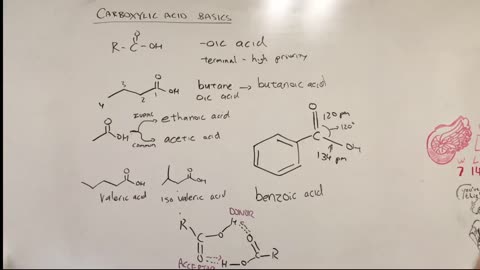 CARBOXYLIC ACID BASICS
O
R-C-OH
-oic acid
terminal - high priority
O
OH
4 3 2 1
butane → butanoic acid
oic acid
O
OH
IUPAC
ethanoic acid
common
acetic acid
O
120 pm
120°
OH
134 pm
benzoic acid
O
OH
Valeric acid
O
OH
iso valeric acid
DONOR
R C O H O
O H O C R
ACCEPTOR
W L
7 14